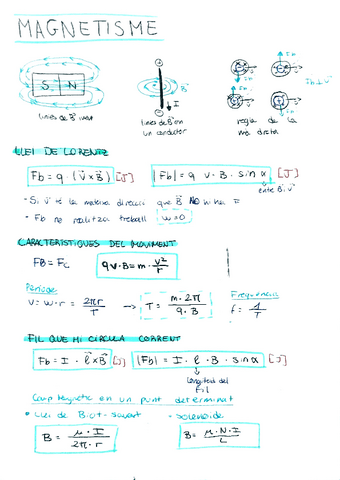 MAGNETISME
S N
I
B
línies de B imant
línies de B en
un conductor
regla de la
mà dreta
LLEI DE LORENTZ
Fb = q · (v x B) [J]
|Fb| = q v · B · sin α [J]
entre B i v
- Si v té la mateixa direcció que B NO hi ha F
- Fb no realitza treball W=0
CARACTERÍSTIQUES DEL MOVIMENT
FB = FC
q v · B = m · v²/r
Període
v = w · r = 2πr/T → T = m · 2π / q · B
Freqüència
f = 1/T
FIL QUE HI CIRCULA CORRENT
Fb = I · l x B [J]
|Fb| = I · l · B · sin α [J]
longitud del
fil
Camp Magnètic en un punt determinat
• Llei de Biot-Savart
- Solenoide
B = μ · I / 2π · r
B = μ · N · I / L